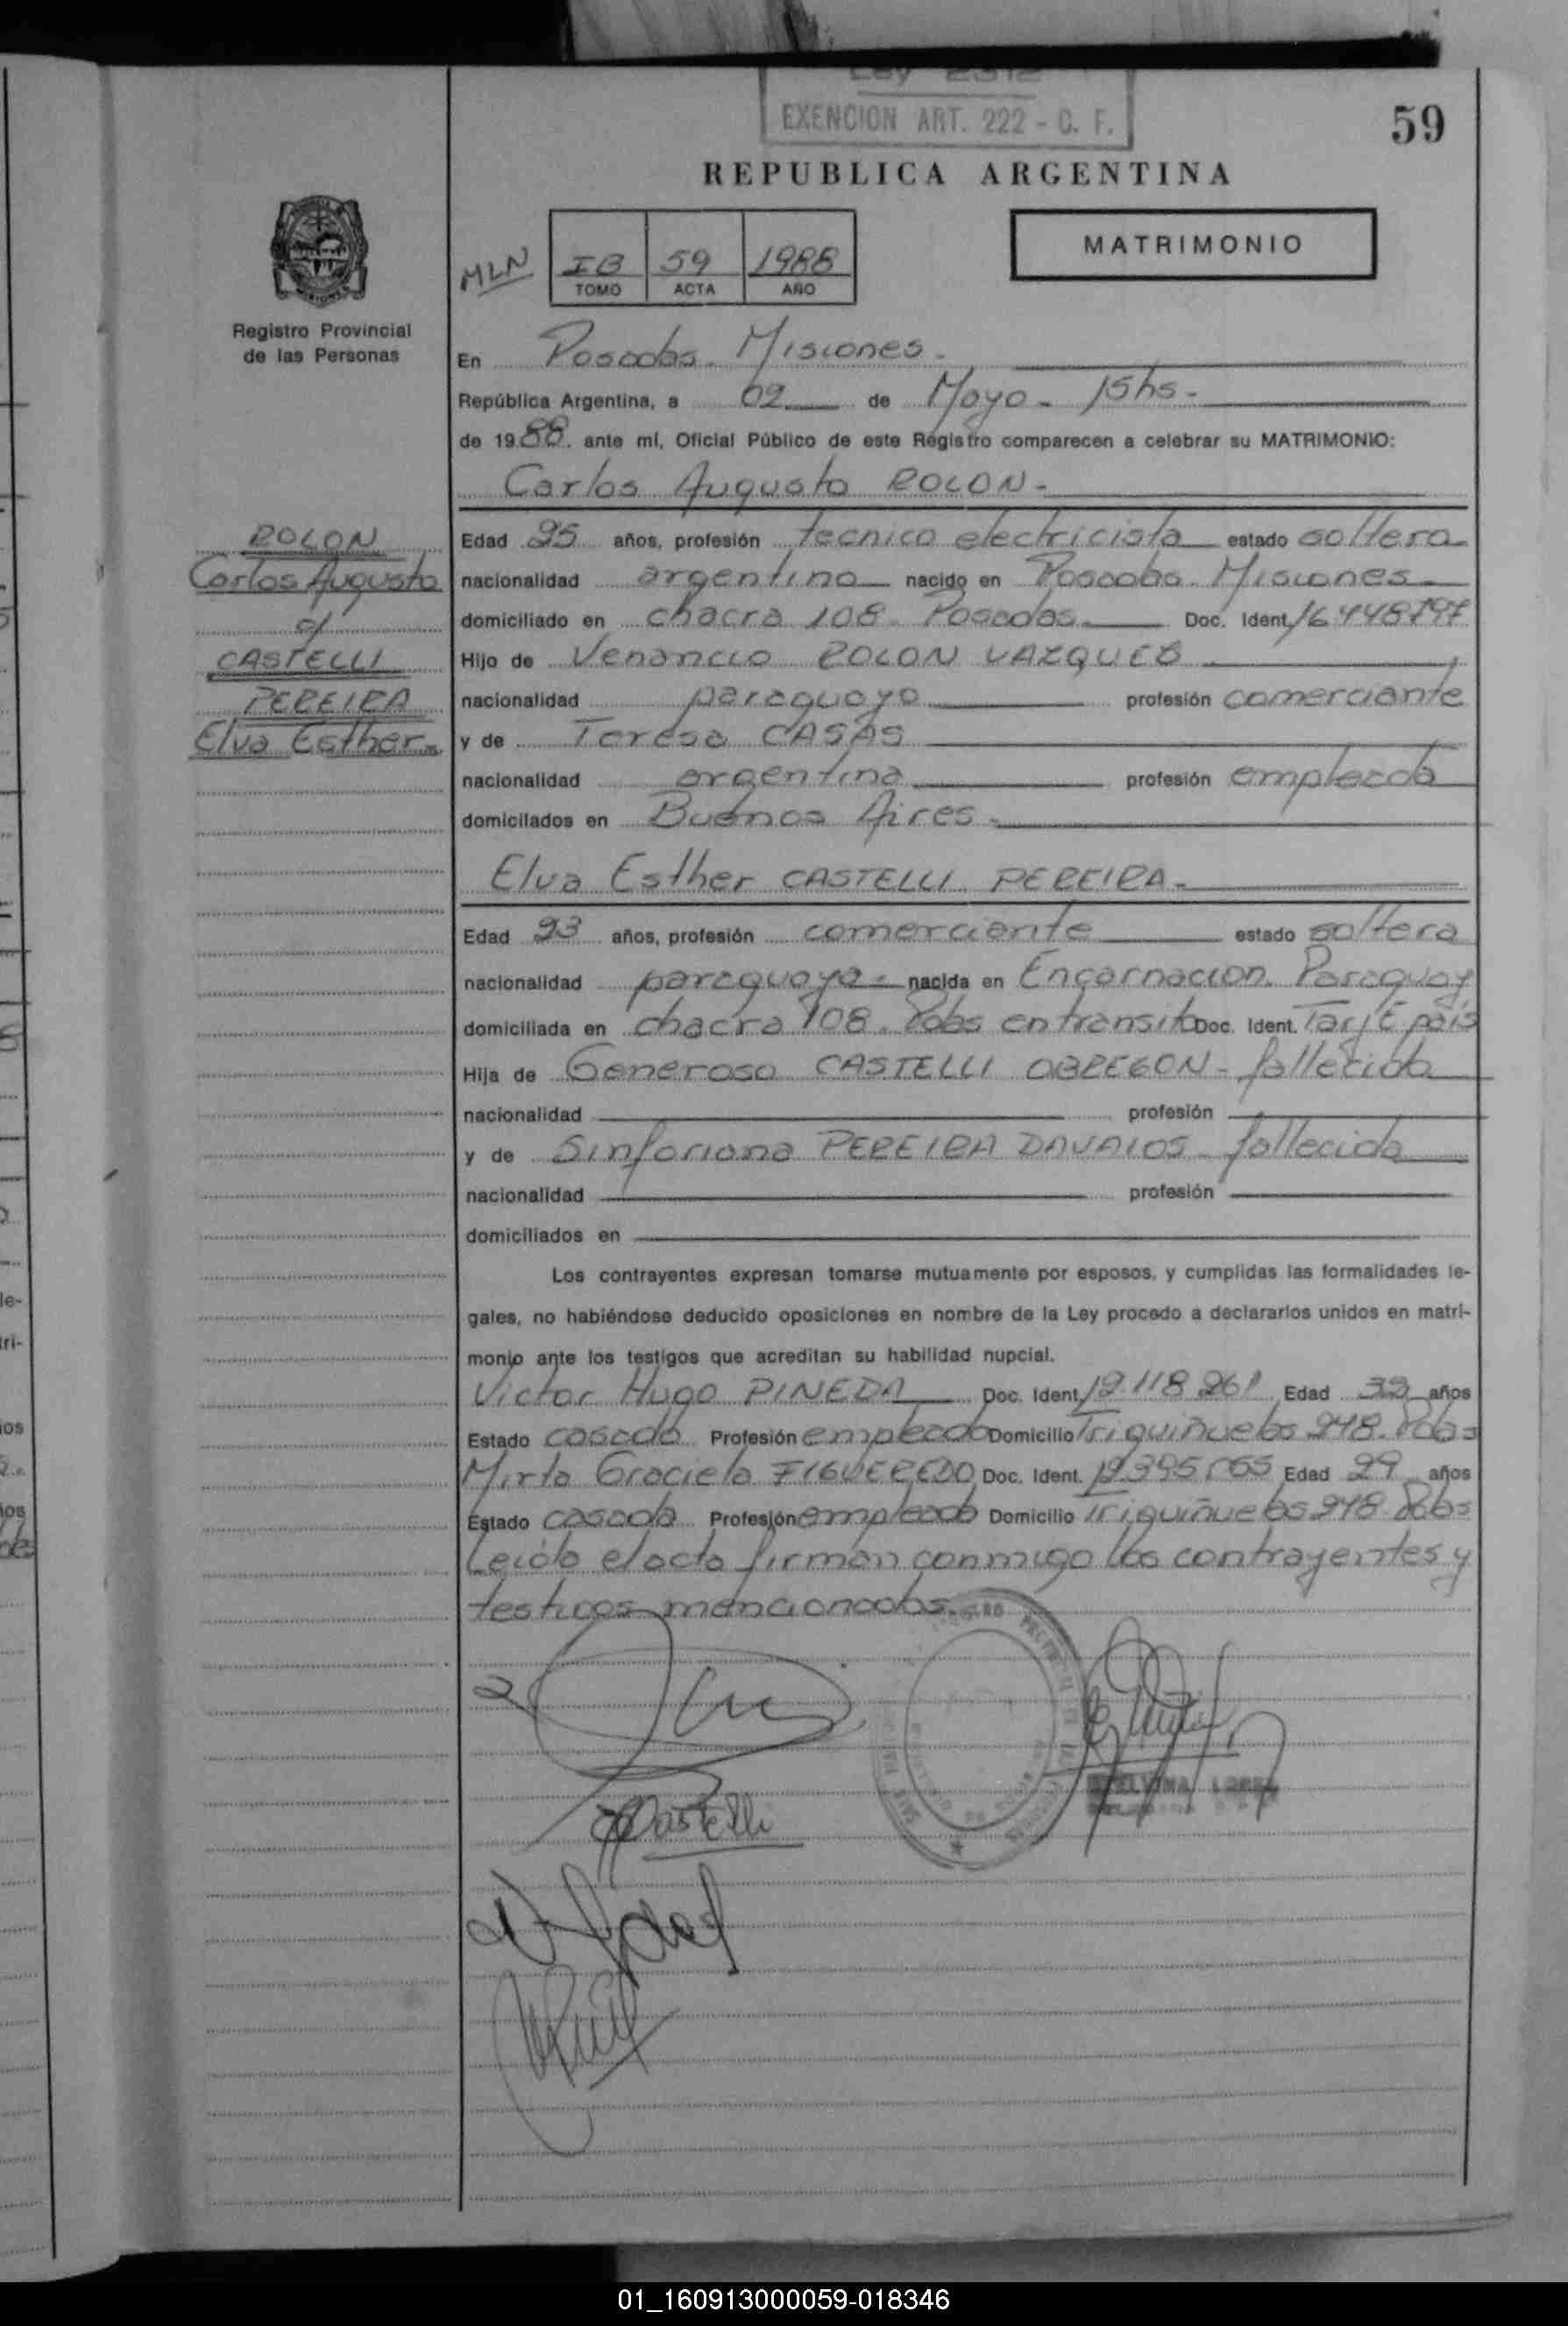 Ley 2312
EXENCION ART. 222 - C. F.
59
REPUBLICA ARGENTINA
MATRIMONIO
MLN
IB 59 1988
TOMO ACTA AÑO
Registro Provincial
de las Personas
En Posadas - Misiones -
República Argentina, a 02 de Mayo - 15hs -
de 1988. ante mí, Oficial Público de este Registro comparecen a celebrar su MATRIMONIO:
Carlos Augusto ROLON -
ROLON
Carlos Augusto
c/
CASTELLI
PEREIRA
Elva Esther -
Edad 25 años, profesión tecnico electricista estado soltero
nacionalidad argentino nacido en Posadas - Misiones -
domiciliado en chacra 108 - Posadas Doc. Ident.
Hijo de Venancio ROLON VAZQUEZ
nacionalidad paraguayo profesión comerciante
y de Teresa CASAS
nacionalidad argentina profesión empleada
domicilados en Buenos Aires -
Elva Esther CASTELLI PEREIRA -
Edad 23 años, profesión comerciante estado soltera
nacionalidad paraguaya - nacida en Encarnacion - Paraguay
domiciliada en chacra 108 - Pdas en transito Doc. Ident. Tarj E pais
Hija de Generoso CASTELLI OBREGON - fallecido
nacionalidad profesión
y de Sinforiana PEREIRA DAVALOS - fallecida
nacionalidad profesión
domiciliados en
Los contrayentes expresan tomarse mutuamente por esposos, y cumplidas las formalidades le-
gales, no habiéndose deducido oposiciones en nombre de la Ley procedo a declararlos unidos en matri-
monio ante los testigos que acreditan su habilidad nupcial.
Victor Hugo PINEDA Doc. Ident. 12.118.261 Edad años
Estado casado Profesión empleado Domicilio Triquiñuelas 248 - Pdas
Mirta Graciela FIGUEREDO Doc. Ident. Edad 29 años
Estado casada Profesión empleada Domicilio Triquiñuelas 248 - Pdas
Leida el acta firman conmigo los contrayentes y
testigos mencionados.
Castelli
01_160913000059-018346